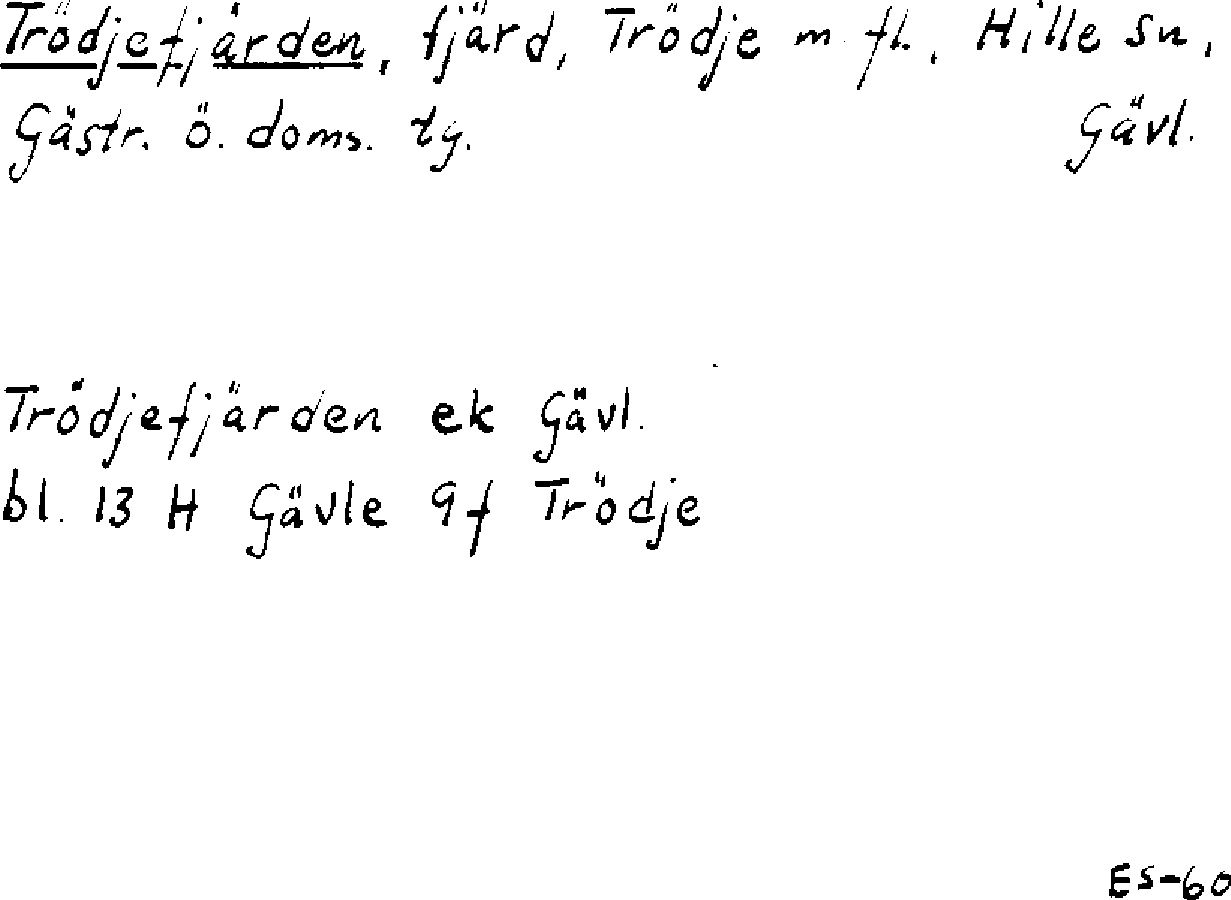 Trödjefjärden, fjärd, Trödje m fl., Hille sn,
Gästr. ö. doms. tg. Gävl.
Trödjefjärden ek Gävl.
bl. 13 H Gävle 9f Trödje
ES-60